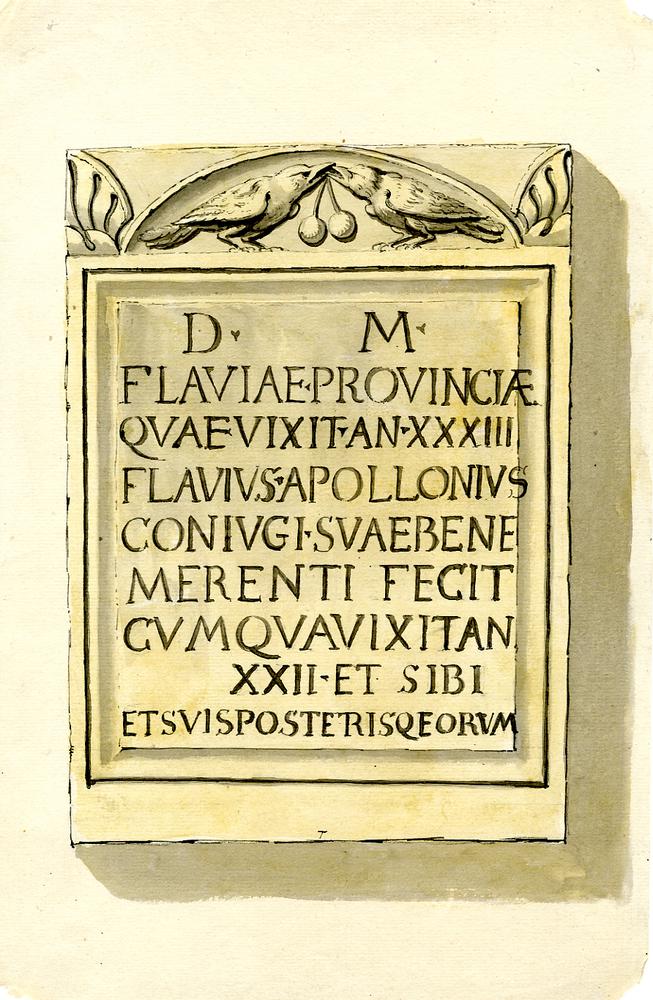 D · M ·
FLAVIAE·PROVINCIÆ
QVAEVIXIT·AN·XXXIII
FLAVIVS·APOLLONIVS
CONIVGI·SVAEBENE
MERENTI FECIT
CVMQVAVIXITAN
XXII·ET SIBI
ETSVISPOSTERISQEORVM
T